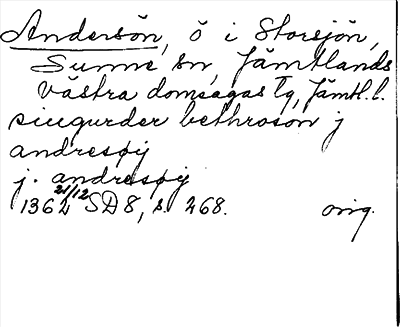 Andersön, ö i Storsjön,
Sunne sn, Jämtlands
västra domsagas Tg, Jämtl. l.
siugurder bethroson j
andresøij
j. andresøij
1362 21/12 SD 8, s. 268. orig.